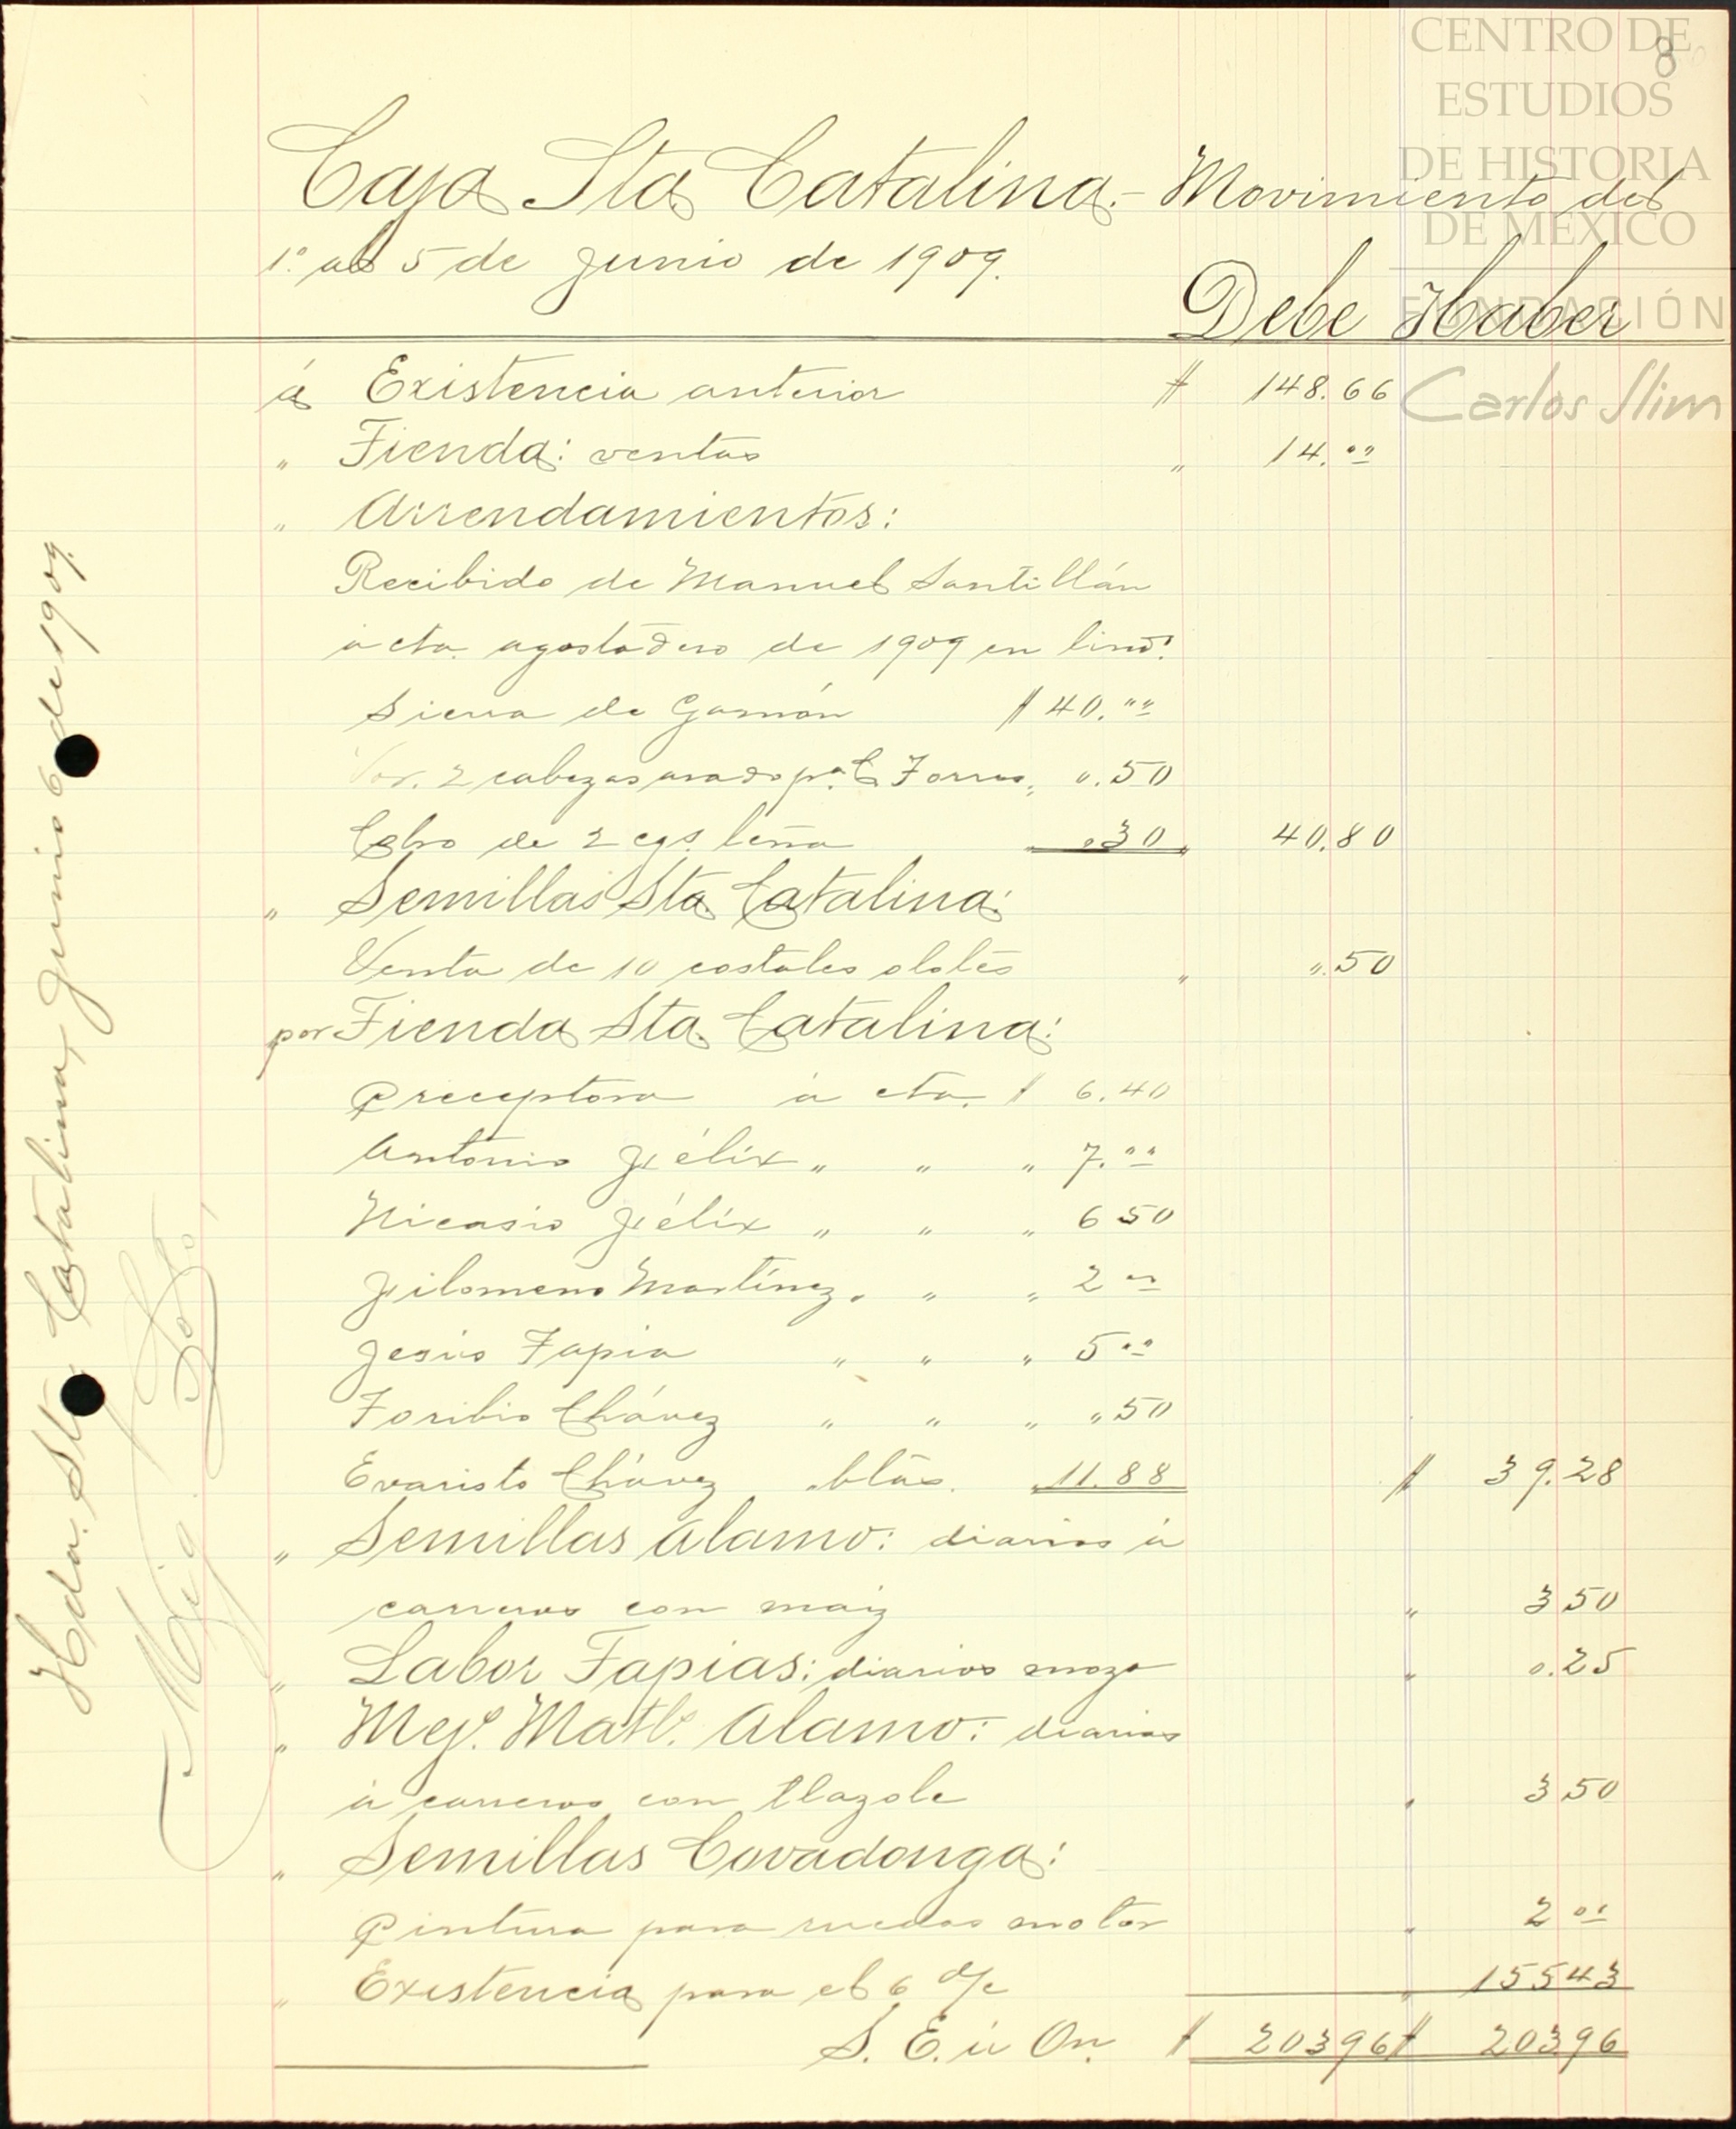 CENTRO DE
ESTUDIOS
DE HISTORIA
DE MEXICO
FUNDACIÓN
Carlos Slim
8
Caja Sta Catalina.- Movimiento del
1º. al 5 de Junio de 1909.
Debe Haber
á Existencia anterior $ 148.66
" Tienda: ventas " 14.""
" Arrendamientos:
Recibido de Manuel Santillán
á cta. agostadero de 1909 en
Sierra de Gamón $ 40.""
2 cabezas arado pª. C Torres " ".50
Cobro de 2 cgs. leña .30 " 40.80
" Semillas Sta. Catalina:
Venta de 10 costales olotes " ".50
por Tienda Sta. Catalina:
Preceptora á cta. $ 6.40
Antonio Félix " " " 7.""
Nicasio Félix " " " 6 50
Filomeno Martínez " " " 2 ""
Jesús Tapia " " " 5 ""
Toribio Chávez " " " " 50
Evaristo Chávez " btás. " 11.88 $ 39.28
" Semillas Alamo: diarios á
carreros con maíz " 3 50
" Labor Tapias: diarios mozo " ".25
" Mejs. Matls. Alamo: diarios
á carreros con tlazole " 3 50
" Semillas Covadonga:
Pintura para ruedas motor " 2 ""
" Existencia para el 6 d/c " 155 43
S. E. ú On. $ 203 96 $ 203.96
Hda. Sta Catalina, Junio 6 de 1909.
Mig. Soto